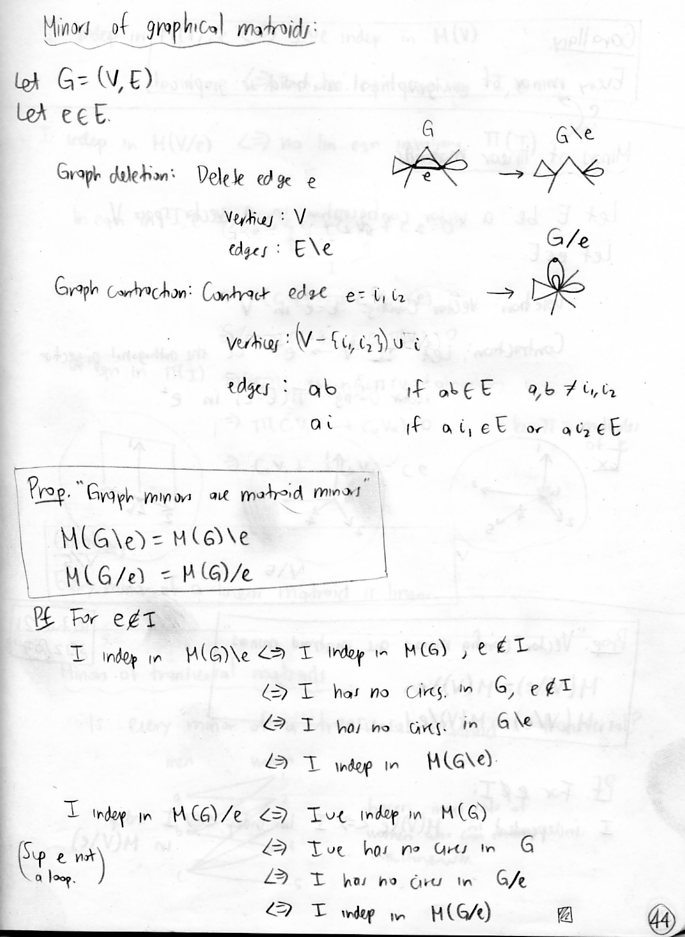 Minors of graphical matroids:
Let G=(V,E)
Let e∈E.
G G\e
e
Graph deletion: Delete edge e
vertices: V
edges: E\e
G/e
Graph contraction: Contract edge e=i₁i₂
vertices: (V-{i₁,i₂})∪i
edges: ab if ab∈E a,b≠i₁,i₂
ai if ai₁∈E or ai₂∈E
Prop. "Graph minors are matroid minors"
M(G\e)=M(G)\e
M(G/e) = M(G)/e
Pf For e∉I
I indep in M(G)\e <=> I indep in M(G), e∉I
<=> I has no circs. in G, e∉I
<=> I has no circs. in G\e
<=> I indep in M(G\e).
I indep in M(G)/e <=> I∪e indep in M(G)
(Sup e not <=> I∪e has no circs in G
a loop.) <=> I has no circs in G/e
<=> I indep in M(G/e)
44